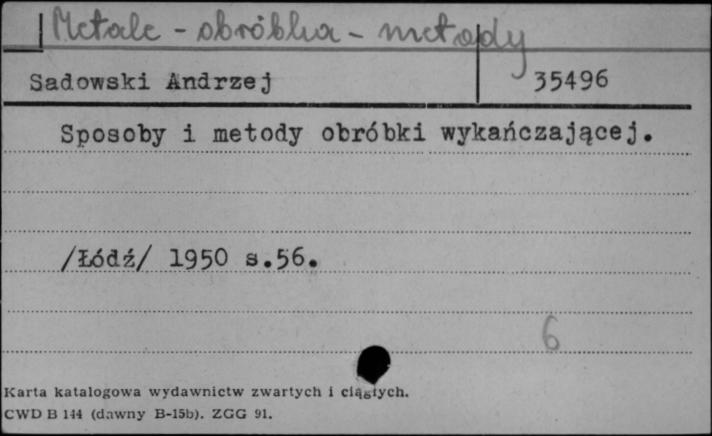 Metale - obróbka - metody
Sadowski Andrzej 35496
Sposoby i metody obróbki wykańczającej.
/Łódź/ 1950 s.56.
6
Karta katalogowa wydawnictw zwartych i ciągłych.
CWD B 144 (dawny B-15b). ZGG 91.